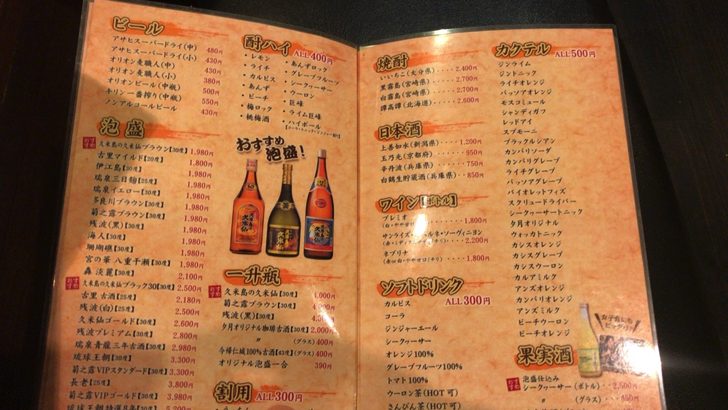 ビール
アサヒスーパードライ(中) 480円
アサヒスーパードライ(小) 430円
オリオン麦職人(中) 480円
オリオン麦職人(小) 430円
オリオンビール(中瓶) 500円
キリン一番搾り(中瓶) 550円
ノンアルコールビール 430円
泡盛
久米島の久米仙ブラウン【30度】 1,980円
古里マイルド【30度】 1,580円
伊江島【30度】 1,980円
瑞泉三日麹【25度】
瑞泉イエロー【30度】
多良川ブラウン【30度】
菊之露ブラウン【30度】 1,980円
残波(黒)【30度】 1,980円
海人【30度】 1,980円
珊瑚礁【30度】 1,980円
宮の華 八重干瀬【30度】 1,980円
轟 淡麗【30度】 2,100円
久米島の久米仙ブラック30【30度】 2,500円
古里 古酒【25度】 2,100円
残波(白)【25度】 2,200円
久米仙ゴールド【30度】 2,600円
残波プレミアム【30度】 2,800円
瑞泉青龍三年古酒【30度】
琉球王朝【30度】 3,300円
菊之露VIPスタンダード【30度】 3,300円
長老【30度】 3,800円
菊之露VIPゴールド【30度】 3,980円
酎ハイ ALL400円
・レモン
・ライチ
・カルピス
・あんず
・ピーチ
・梅ロック
・桃梅酒
・あんずロック
・グレープフルーツ
・シークヮーサー
・ウーロン
・巨峰
・ライム巨峰
・ハイボール
おすすめ泡盛!
久米仙
一升瓶
久米島の久米仙【30度】 4,000円
菊之露ブラウン【30度】
残波(黒)【30度】 4,300円
夕月オリジナル珈琲古酒【30度】 2,000円
〃 (グラス) 400円
今帰仁城100%古酒【43度】(グラス) 400円
オリジナル泡盛一合 390円
割用 ALL300円
焼酎
いいちこ(大分県) 2,400円
黒霧島(宮崎県) 2,700円
白霧島(宮崎県) 2,700円
譚高譚(北海道) 2,600円
日本酒
上善如水(新潟県) 1,200円
玉乃光(京都府) 950円
辛丹波(兵庫県) 750円
白鶴生貯蔵酒(兵庫県) 850円
ワイン【ボトル】
プレミオ 1,800円
サンライズ・カベルネ・ソーヴィニヨン 2,200円
ネブリナ 1,800円
ソフトドリンク ALL300円
カルピス
コーラ
ジンジャーエール
シークヮーサー
オレンジ100%
グレープフルーツ100%
トマト100%
ウーロン茶(HOT可)
さんぴん茶(HOT可)
カクテル ALL500円
ジンライム
ジントニック
ライチオレンジ
パッソアオレンジ
モスコミュール
シャンディガフ
レッドアイ
スプモーニ
ブラックルシアン
カンパリソーダ
カンパリグレープ
ライチグレープ
パッソアグレープ
バイオレットフィズ
スクリュードライバー
シークヮーサートニック
夕月オリジナル
ウォッカトニック
カシスオレンジ
カシスグレープ
カシスウーロン
カルアミルク
アンズオレンジ
カンパリオレンジ
アンズミルク
ピーチウーロン
ピーチオレンジ
果実酒
泡盛仕込み
シークヮーサー(ボトル) 2,500円
〃 (グラス) 450円